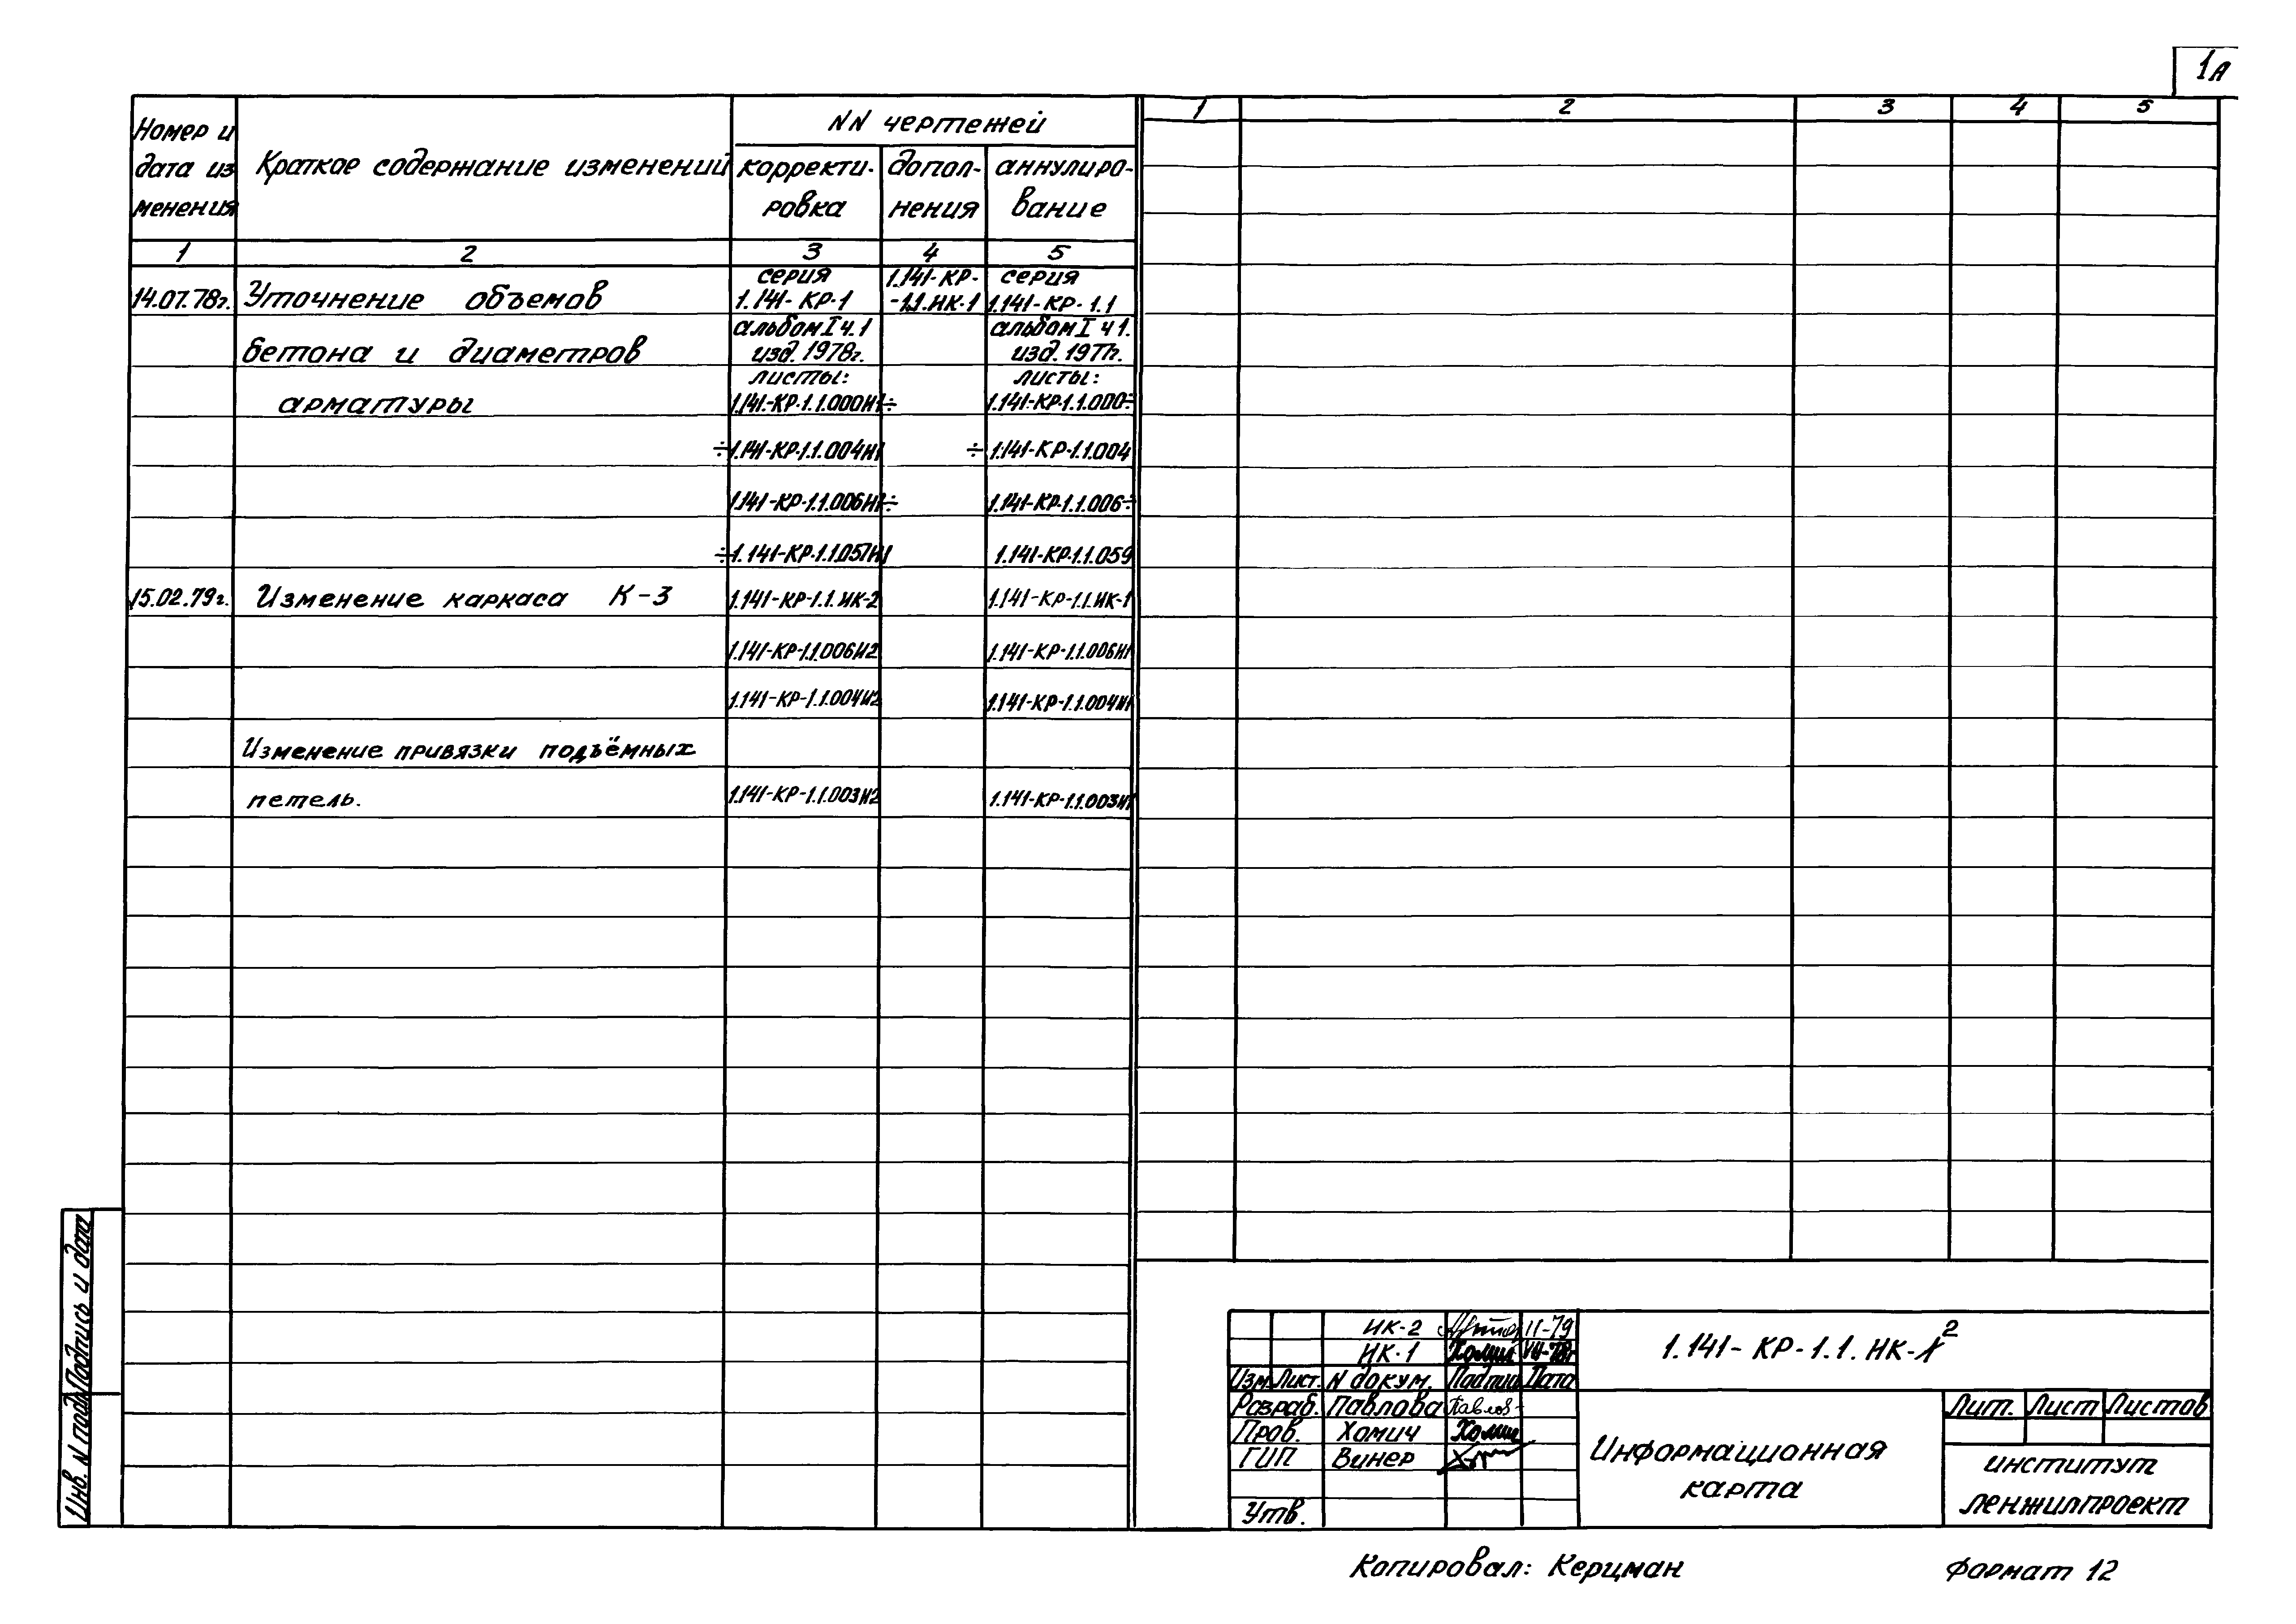 1А
Номер и
дата из
менения
Краткое содержание изменений
NN чертежей
корректи-
ровка
допол-
нения
аннулиро-
вание
1 2 3 4 5
1 2 3 4 5
14.07.78г. Уточнение объемов
бетона и диаметров
арматуры
серия
1.141-КР-1
альбом I ч.1
изд. 1978г.
листы:
1.141-КР-1.1.000И1÷
÷1.141-КР-1.1.004И1
1.141-КР-1.1.006И1÷
÷1.141-КР-1.1.057И1
1.141-КР-
-1.1.ИК-1
серия
1.141-КР-1.1
альбом I ч 1.
изд. 1977г.
листы:
1.141-КР-1.1.000÷
÷1.141-КР-1.1.004
1.141-КР-1.1.006÷
1.141-КР-1.1.059
15.02.79г. Изменение каркаса К-3 1.141-КР-1.1.ИК-2 1.141-КР-1.1.ИК-1
1.141-КР-1.1.006И2 1.141-КР-1.1.006И1
1.141-КР-1.1.004И2 1.141-КР-1.1.004И1
Изменение привязки подъёмных
петель. 1.141-КР-1.1.003И2 1.141-КР-1.1.003И1
Подпись и дата
Инв. N подл.
ИК-2 II-79
ИК-1 Хомич VII-78г
Изм Лист. N докум. Подпись Дата
Разраб. Павлова Павлов
Пров. Хомич Хомич
ГИП Винер
Утв.
1.141-КР-1.1.ИК-2
Информационная
карта
Лит. Лист Листов
институт
ленжилпроект
Копировал: Керцман Формат 12